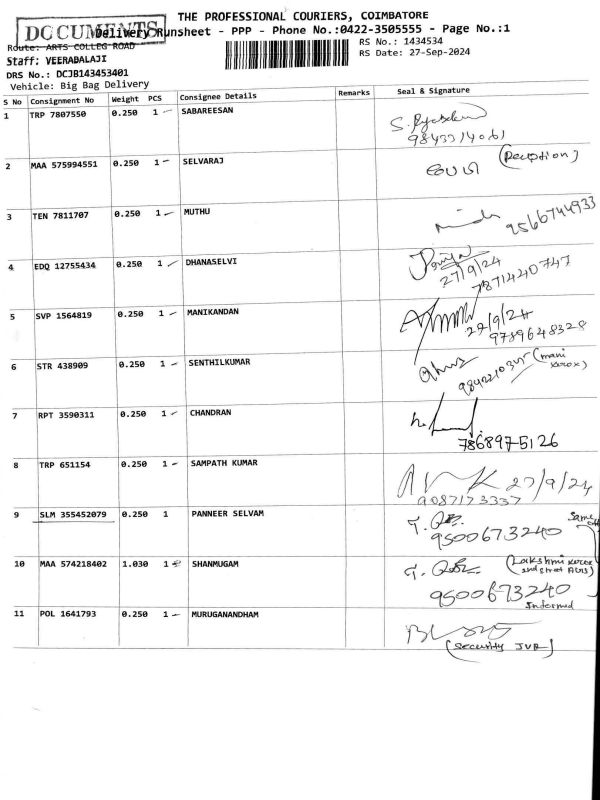 THE PROFESSIONAL COURIERS, COIMBATORE
DOCUMENTS
Delivery Runsheet - PPP - Phone No.:0422-3505555 - Page No.:1
Route: ARTS COLLEG ROAD
RS No.: 1434534
Staff: VEERABALAJI
RS Date: 27-Sep-2024
DRS No.: DCJB143453401
Vehicle: Big Bag Delivery
S No Consignment No Weight PCS Consignee Details Remarks Seal & Signature
1 TRP 7807550 0.250 1 SABAREESAN
9843314061
2 MAA 575994551 0.250 1 SELVARAJ
(Reception)
3 TEN 7811707 0.250 1 MUTHU
9566744933
4 EDQ 12755434 0.250 1 DHANASELVI
27/9/24
7871440747
5 SVP 1564819 0.250 1 MANIKANDAN
27/9/24
9789648328
6 STR 438909 0.250 1 SENTHILKUMAR
(mani xerox)
7 RPT 3590311 0.250 1 CHANDRAN
7868975126
8 TRP 651154 0.250 1 SAMPATH KUMAR
27/9/24
9087173337
9 SLM 355452079 0.250 1 PANNEER SELVAM
Same
9500673240
10 MAA 574218402 1.030 1 SHANMUGAM
(Lakshmi xerox
9500673240
Informed
11 POL 1641793 0.250 1 MURUGANANDHAM
(Security JVR)